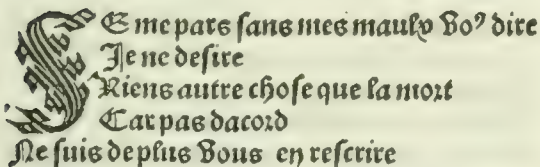 JE me pars sans mes maulx voꝰ dire
Je ne desire
Riens autre chose que la mort
Car pas dacord
Ne suis de plus vous en rescrire